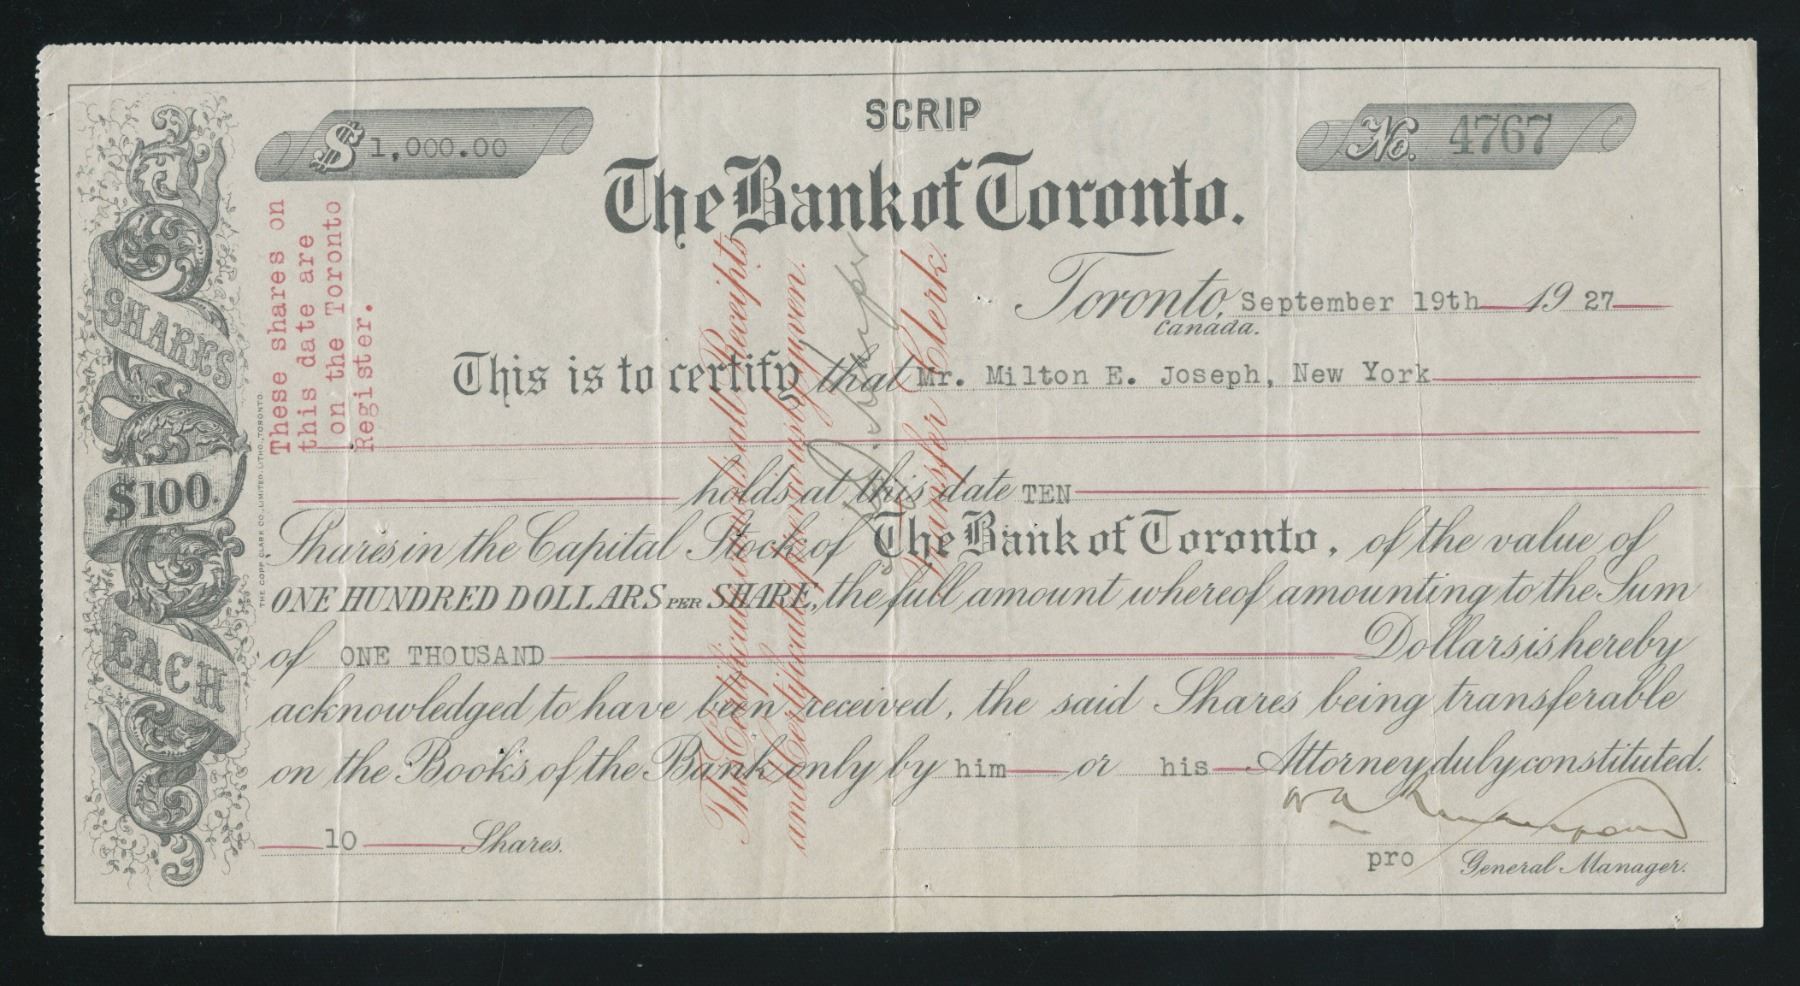 SCRIP
$ 1,000.00
No. 4767
The Bank of Toronto.
Toronto, September 19th 1927
Canada.
This is to certify that Mr. Milton E. Joseph, New York
holds at this date TEN
Shares in the Capital Stock of The Bank of Toronto, of the value of
ONE HUNDRED DOLLARS PER SHARE, the full amount whereof amounting to the Sum
of ONE THOUSAND Dollars is hereby
acknowledged to have been received, the said Shares being transferable
on the Books of the Bank only by him or his Attorney duly constituted.
10 Shares.
pro General Manager.
SHARES
$100.
EACH
THE COPP CLARK CO. LIMITED. LITHO. TORONTO.
These shares on
this date are
on the Toronto
Register.
This Certificate cancels all Receipts
and Certificates previously given.
Transfer Clerk.